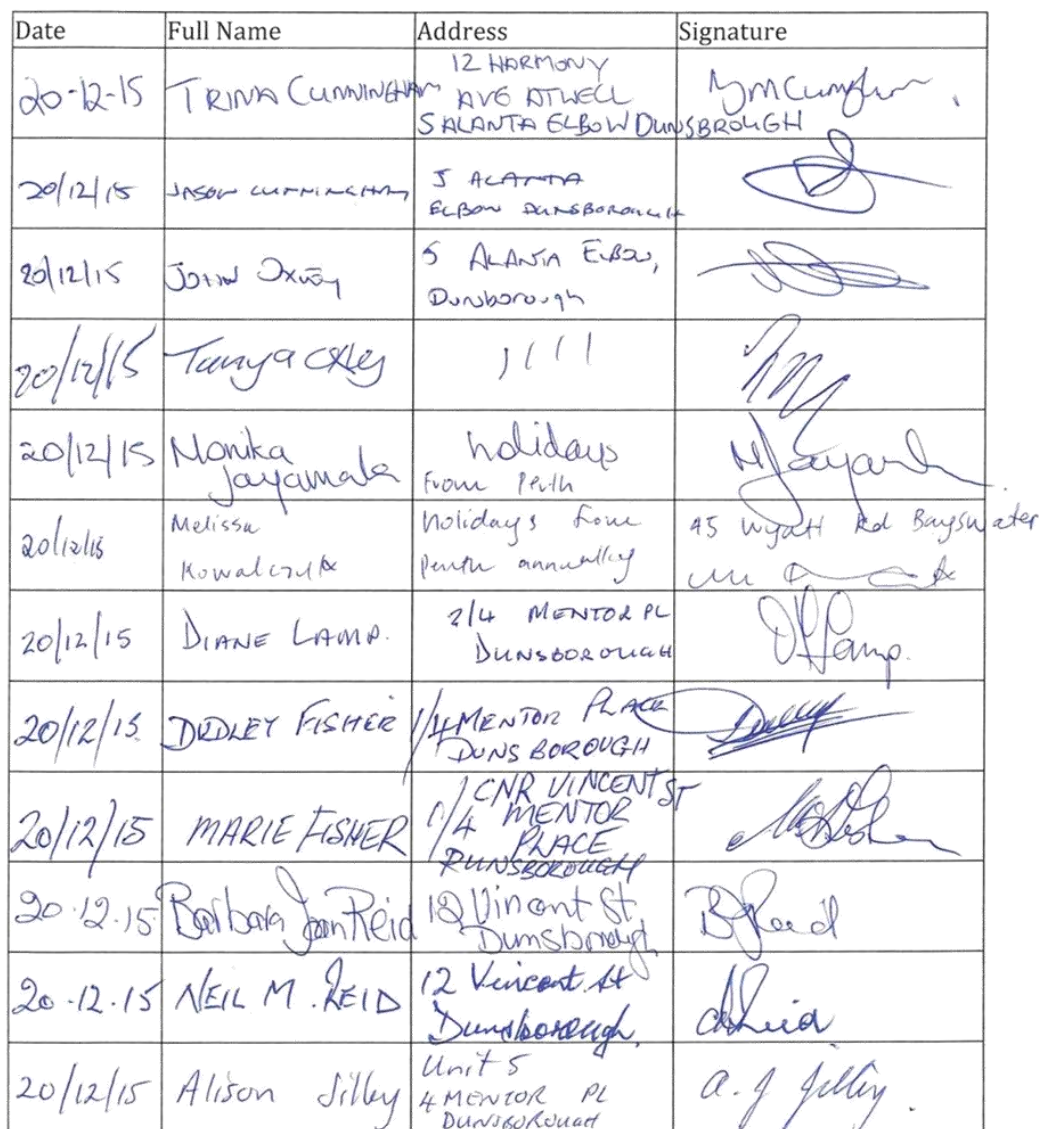 Date Full Name Address Signature
20-12-15 TRINA CUNNINGHAM 12 HARMONY
AVE ATWELL
5 ALANTA ELBOW DUNSBROUGH
20/12/15 JASON CUNNINGHAM 5 ALANTA
ELBOW DUNSBOROUGH
20/12/15 JOHN OXLEY 5 ALANTA ELBOW,
Dunborough
20/12/15 Tanya Oxley ) ( ( (
20/12/15 Monika
Jayamala
holidays
from Perth
20/12/15 Melissa
holidays from
Perth annually
45 Wyatt Rd Bayswater
20/12/15 DIANE LAMP. 2/4 MENTOR PL
DUNSBOROUGH
20/12/15 DUDLEY FISHER 1/4 MENTOR PLACE
DUNSBOROUGH
20/12/15 MARIE FISHER CNR VINCENT ST
1/4 MENTOR
PLACE
DUNSBOROUGH
20.12.15 Barbara Joan Reid 12 Vincent St
Dunsborough
B J Reid
20.12.15 NEIL M. REID 12 Vincent St
Dunsborough,
20/12/15 Alison Jilley Unit 5
4 MENTOR PL
DUNSBOROUGH
a. J Jilley.